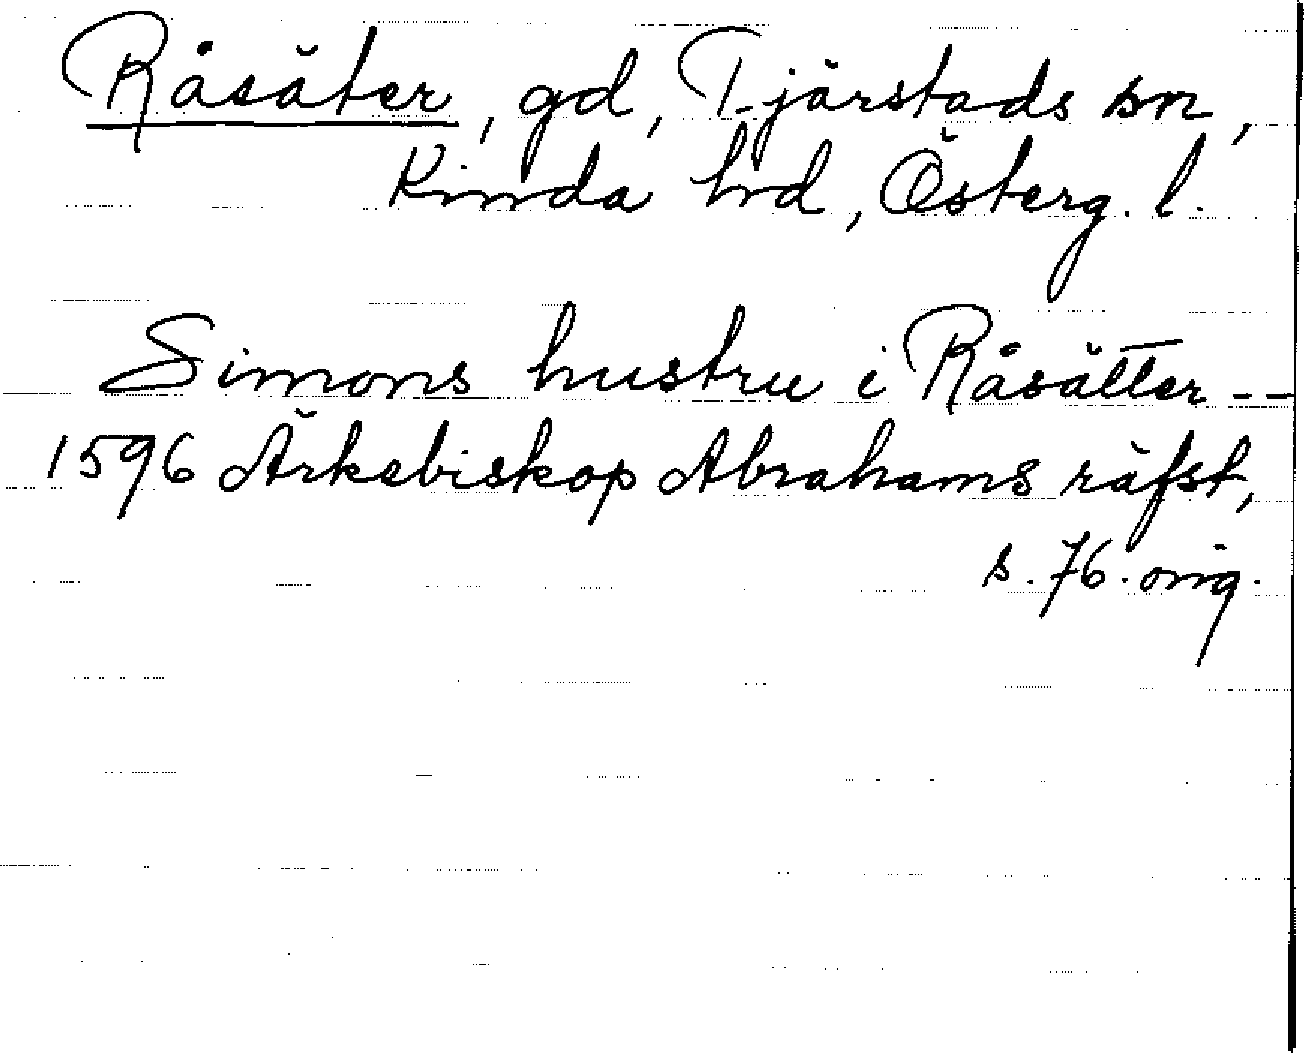 Råsäter, gd, Tjärstads sn,
Kinda hd, Österg. l.
Simons hustru i Råsätter --
1596 Ärkebiskop Abrahams räfst,
s. 76. orig.